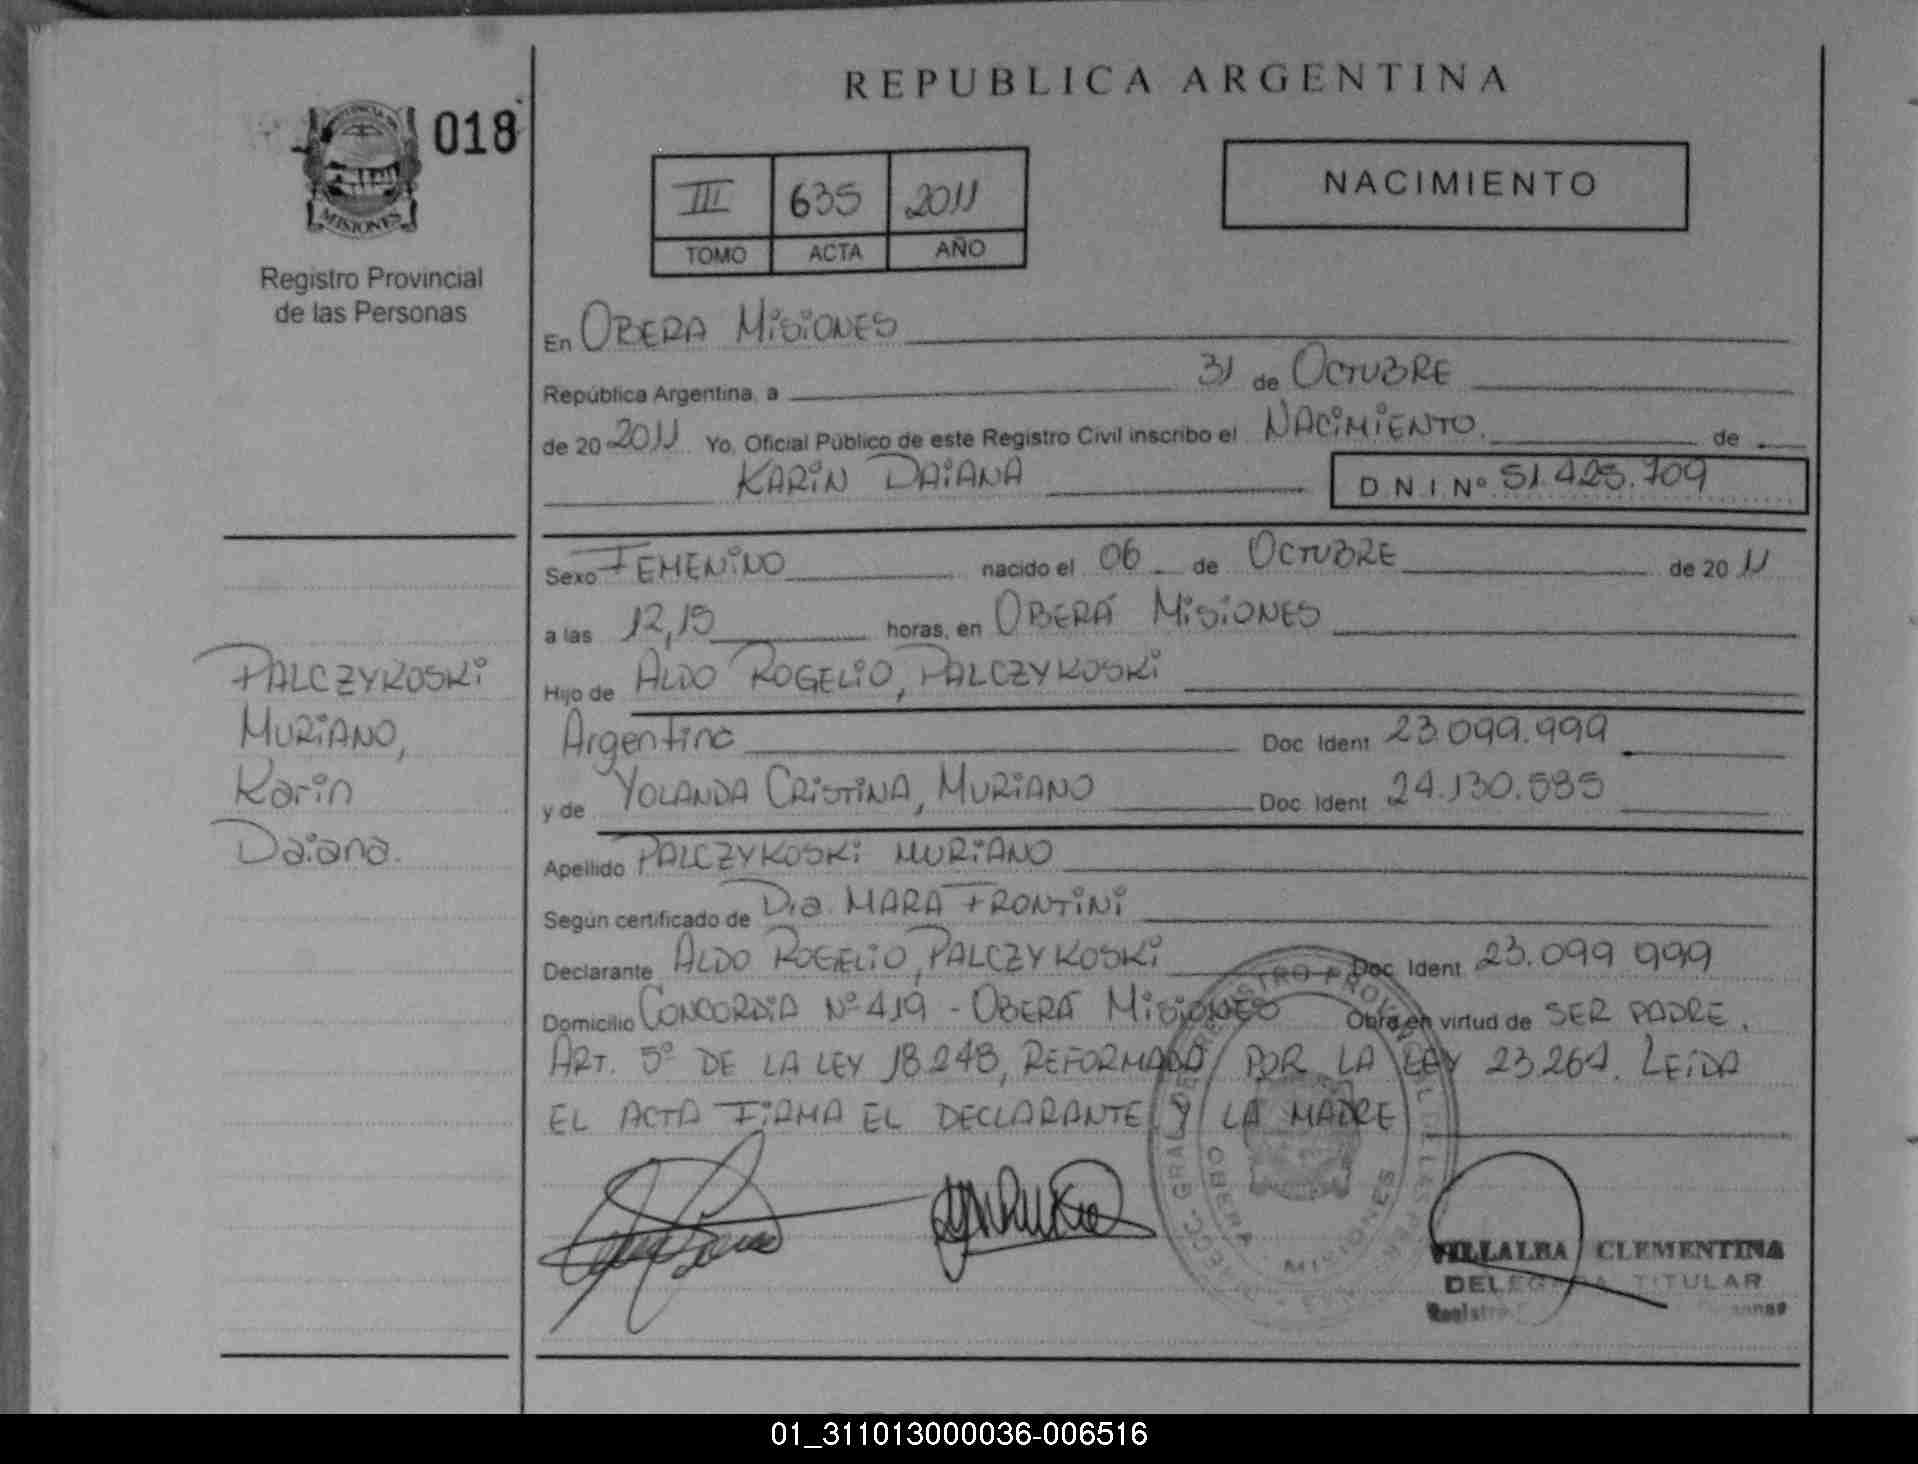 REPUBLICA ARGENTINA
018
MISIONES
Registro Provincial
de las Personas
III 635 2011
TOMO ACTA AÑO
NACIMIENTO
En OBERA MISIONES
República Argentina, a 31 de OCTUBRE
de 20 2011 Yo, Oficial Público de este Registro Civil inscribo el NACIMIENTO. de
KARIN DAIANA D N I Nº 51.425.709
Sexo FEMENINO nacido el 06 de OCTUBRE de 20 11
a las 12,15 horas, en OBERÁ MISIONES
Hijo de ALDO ROGELIO, PALCZYKOSKI
Argentino Doc Ident 23.099.999
y de YOLANDA CRISTINA, MURIANO Doc Ident 24.130.585
Apellido PALCZYKOSKI MURIANO
Según certificado de Dra. MARA FRONTINI
Declarante ALDO ROGELIO, PALCZYKOSKI Doc Ident 23.099 999
Domicilio CONCORDIA Nº 419 - OBERÁ MISIONES Obra en virtud de SER PADRE.
ART. 5º DE LA LEY 18.248, REFORMADA POR LA LEY 23.264. LEIDA
EL ACTA FIRMA EL DECLARANTE Y LA MADRE
PALCZYKOSKI
MURIANO,
Karin
Daiana.
OBERA - MISIONES
VILLALBA CLEMENTINA
DELEGADA TITULAR
Registro
01_311013000036-006516